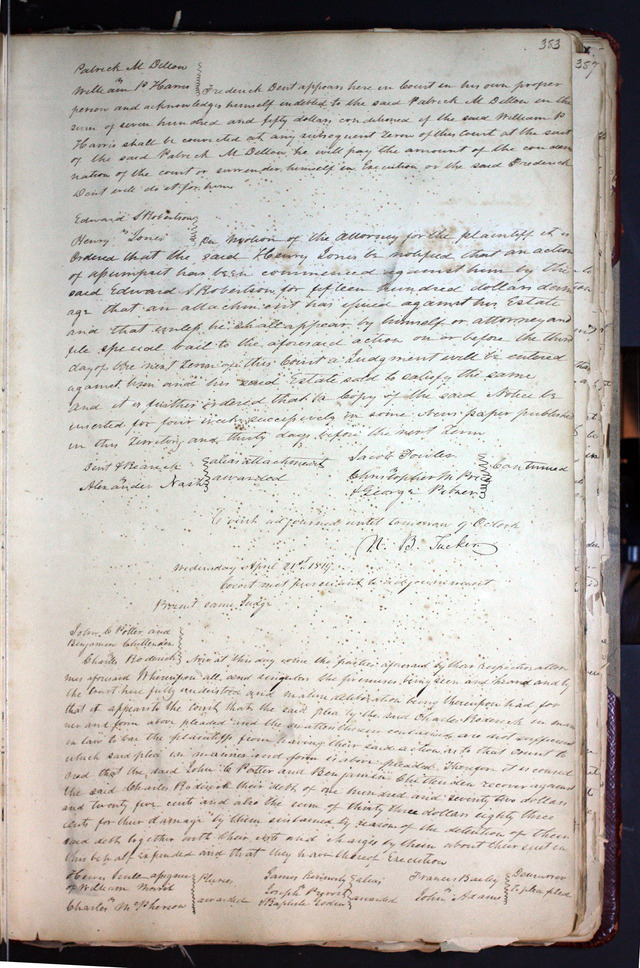 383
387
Patrick M Dillon
vs
William P Harris Frederick Dent appears here in Court in his own proper
person and acknowledges himself indebted to the said Patrick M Dillon in the
sum of seven hundred and fifty dollars conditioned if the said William P
Harris shall be convicted at any subsequent term of this court at the suit
of the said Patrick M Dillon he will pay the amount of the condem
nation of the court or surrender himself in Execution or the said Frederick
Dent will do it for him
Edward S Robertson
vs
Henry Jones On motion of the Attorney for the plaintiff it is
Ordered that the said Henry Jones be notified that an action
of assumpsit has been commenced against him by the
said Edward S Robertson for fifteen hundred dollars dam
age that an attachment has issued against his Estate
and that unless he shall appear by himself or attorney and
file special bail to the aforesaid action on or before the third
day of the next term of this Court a Judgment will be entered
against him and his said Estate sold to satisfy the same
and it is further ordered that a Copy of the said Notice be
inserted for four weeks successively in some News paper published
in this Territory and thirty days before the next term
Dent & Rearick alias attachment
vs
Alexander Nash awarded
Jacob Fowler
vs
Christopher M Price Continued
& George Pitzer
Court adjourned until tomorrow 9 Oclock
N. B. Tucker
Wednesday April 21st. 1819
Court met pursuant to adjournment
Present same Judge
John C Potter and
Benjamin Chittenden
vs
Charles Roderick Now at this day come the parties aforesaid by their respective attor
nies aforesaid Whereupon all and singular the premises being seen and heard and by
the Court here fully understood and mature deliberation being thereupon had for
that it appears to the Court that the said plea by the said Charles Roderick in man
ner and form above pleaded and the matters therein contained are not sufficient
in law to bar the plaintiffs from having their said action as to that Count to
which said plea in manner and form is above pleaded Therefore It is consid
ered that the said John C Potter and Benjamin Chittenden recover against
the said Charles Roderick their debt of one hundred and seventy two dollars
and twenty five cents and also the sum of thirty three dollars eighty three
cents for their damage by them sustained by reason of the detention of their
said debt together with their costs and charges by them about their suit in
this behalf expended and that they have thereof Execution
assignee Pluries
of William Morris
vs awarded
Charles McPherson
James Kennerly alias
vs
Joseph awarded
& Baptiste
Francis Bailey Demurrer
vs to plea filed
John Adams